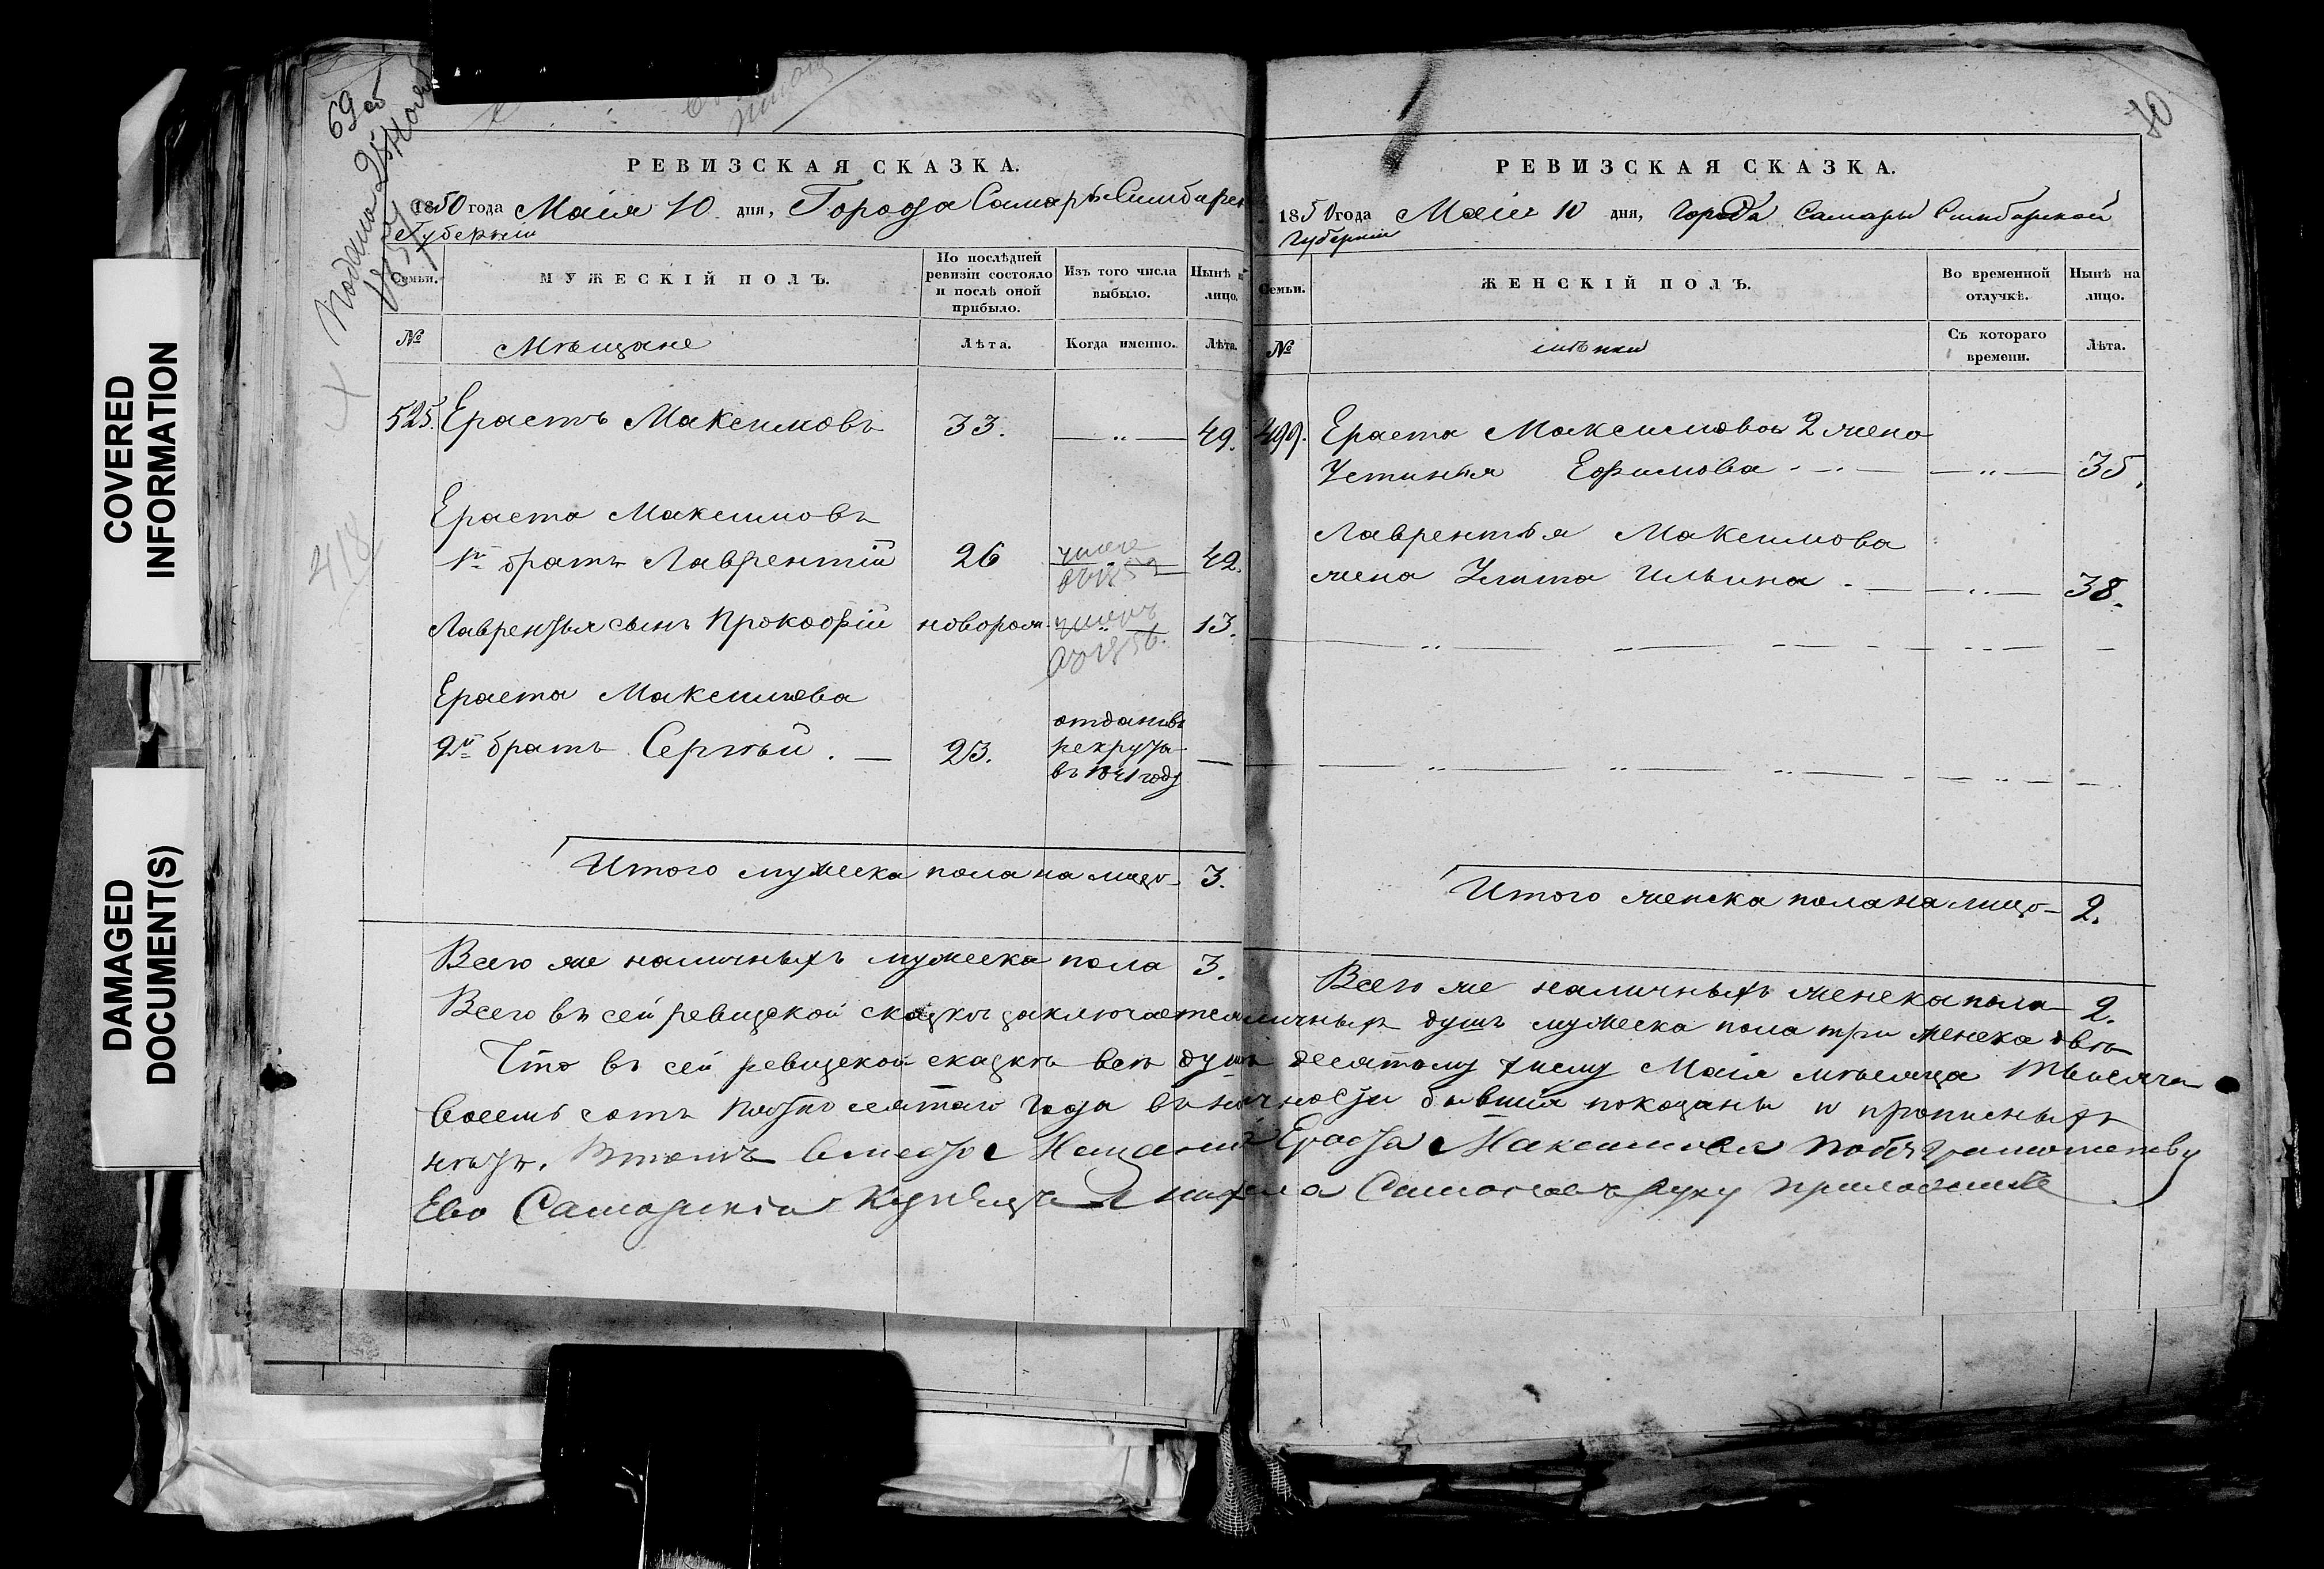 COVERED
INFORMATION
DAMAGED
DOCUMENT(S)
69 об
Подана
418
РЕВИЗСКАЯ СКАЗКА.
1850 года Маія 10 дня, Города Самары Симбирск
Губерніи
Семьи.
МУЖЕСКІЙ ПОЛЪ.
По послѣдней ревизіи состояло и послѣ оной прибыло.
Изъ того числа выбыло.
Нынѣ на лицо.
№
Мѣщане
Лѣта.
Когда именно.
Лѣта.
525. Ерастъ Максимовъ 33. — „ — 49.
Ераста Максимовъ
1й братъ Лаврентій 26 42.
Лаврентья сынъ Прокофій новорож. 13.
Ераста Максимова
2й братъ Сергѣй. — 23. отданъ въ рекруты въ 1841 году —
Итого мужеска пола на лицо 3.
Всего же наличныхъ мужеска пола 3.
70
РЕВИЗСКАЯ СКАЗКА.
1850 года Маія 10 дня, города Самары Симбирской
Губерніи
Семьи.
ЖЕНСКІЙ ПОЛЪ.
Во временной отлучкѣ.
Нынѣ на лицо.
№
Съ котораго времени.
Лѣта.
499. Ераста Максимова 2 жена
Устинья Ефимова — „ — 35.
Лаврентья Максимова
жена Улита Ильина — „ — 38.
Итого женска пола на лицо — 2.
Всего же наличныхъ женска пола — 2.
Всего въ сей ревизской сказкѣ заключается наличныхъ душъ мужеска пола три женска двѣ
Что въ сей ревизской сказкѣ всѣ души десятому числу Маія мѣсяца тысяча
восемь сотъ пятьдесятаго года въ наличности бывшія показаны и прописныхъ
нѣтъ. Въ томъ вместо Мещанина Ераста Максимова по безграмотству
Ево Самарскій Купецъ Симоновъ руку приложилъ